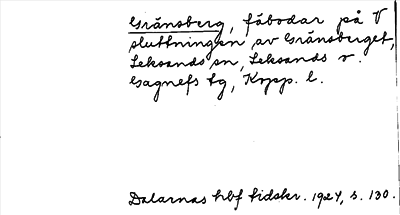 Gränsberg, fäbodar på V
sluttningen av Gränsberget,
Leksands sn, Leksands v.
Gagnefs tg, Kopp. l.
Dalarnas hbf tidskr. 1924, s. 130.